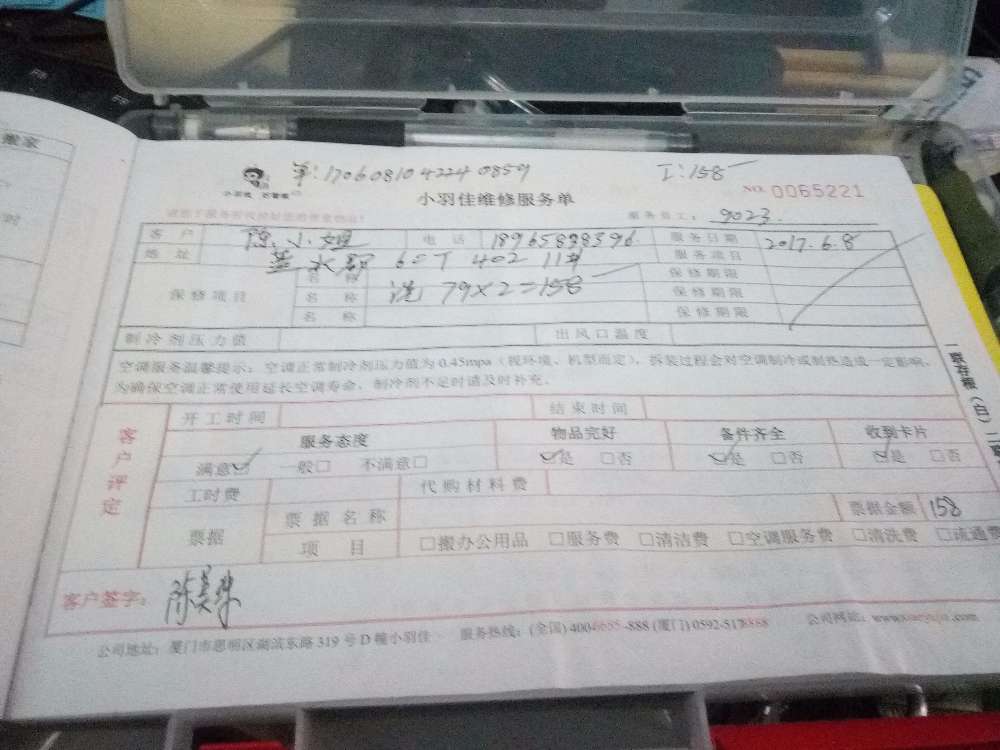 搬家
时
单:170608104224 0859 工:158
小羽佳
NO. 0065221
小羽佳维修服务单
服务员工: 9023
客户 陈小姐 电话 18965898396 服务日期 2017.6.8
地址 60T 402 11# 服务项目
保修项目
名称 洗 79×2=158 保修期限
名称 保修期限
名称 保修期限
制冷剂压力值 出风口温度
空调服务温馨提示:空调正常制冷剂压力值为0.45mpa(视环境、机型而定),拆装过程会对空调制冷或制热造成一定影响,
为确保空调正常使用延长空调寿命,制冷剂不足时请及时补充。
一联存根(白)二联
客户评定
开工时间 结束时间
服务态度 物品完好 备件齐全 收到卡片
满意☑ 一般□ 不满意□ ☑是 □否 ☑是 □否 ☑是 □否
工时费 代购材料费
票据 票据名称 票据金额 158
项目 □搬办公用品 □服务费 □清洁费 □空调服务费 □清洗费 □流通费
客户签字: 陈美珠
公司地址:厦门市思明区湖滨东路319号D幢小羽佳 服务热线:(全国)4006655-888(厦门)0592-5178888 公司网站:www.xiaoyujia.com